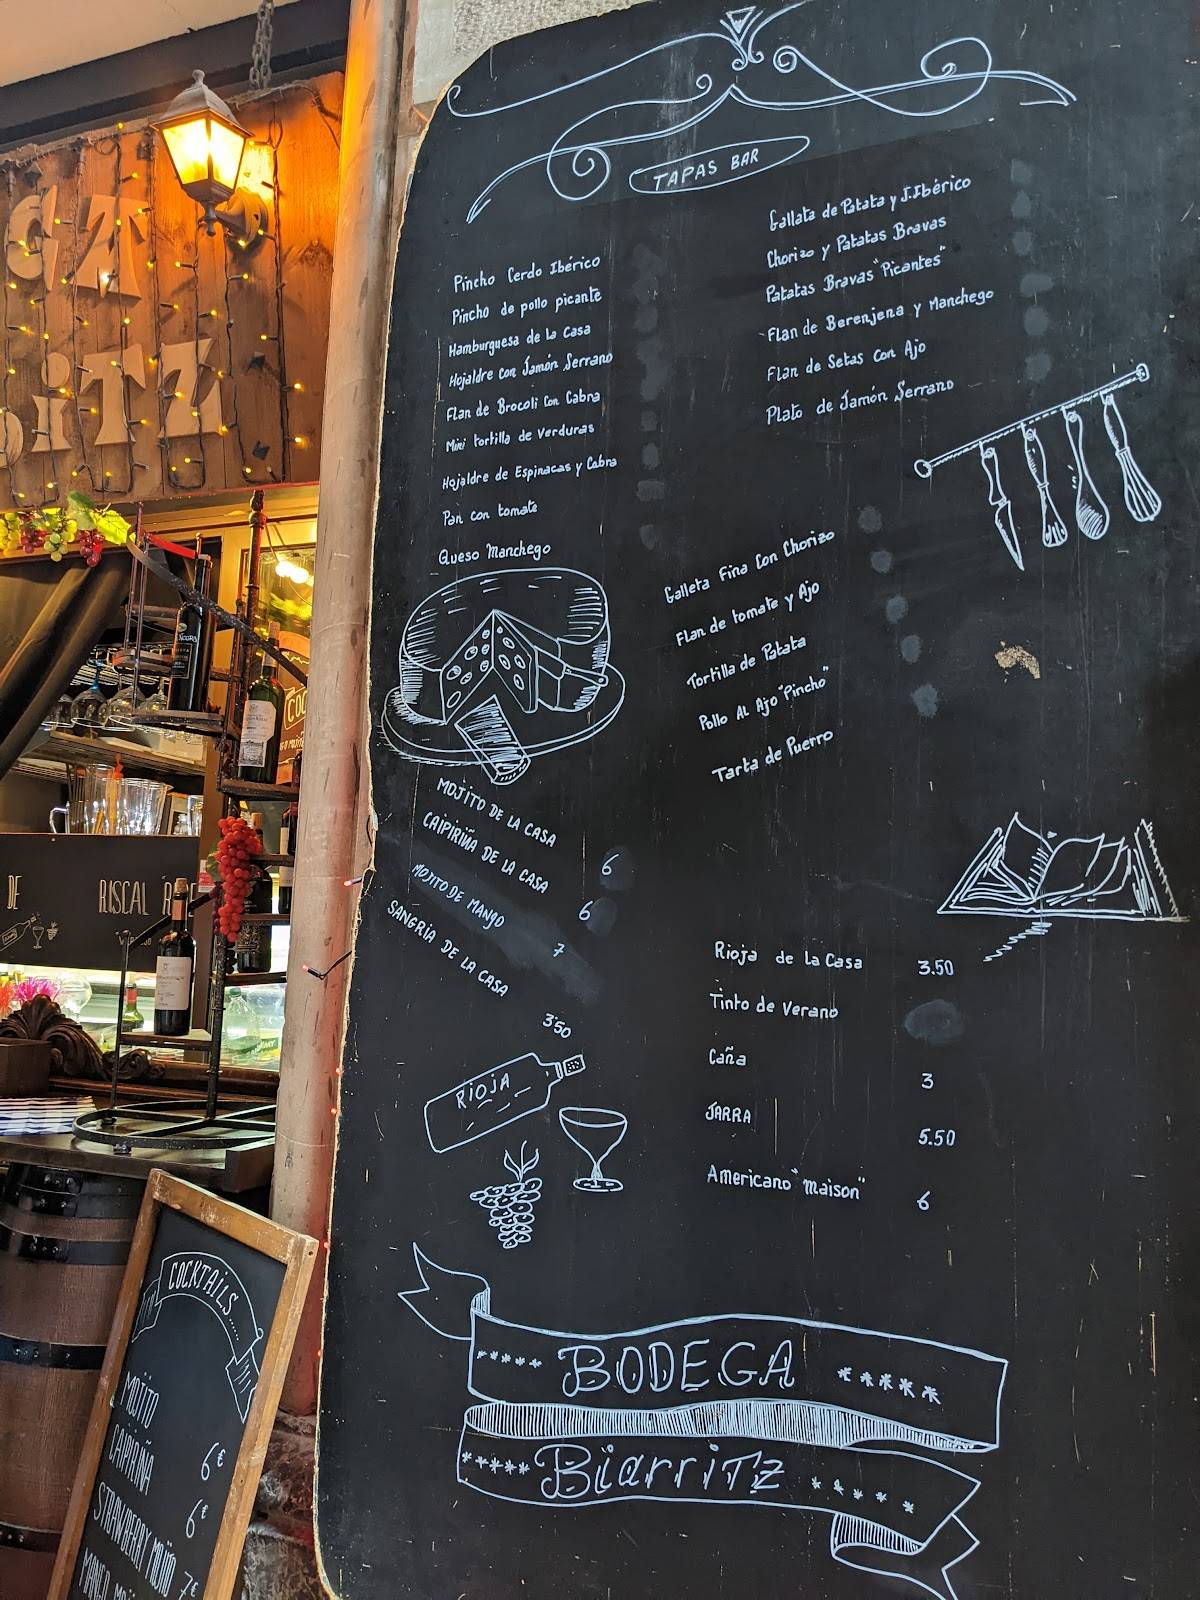 TAPAS BAR
Pincho Cerdo Ibérico
Pincho de pollo picante
Hamburguesa de la casa
Hojaldre con Jamón Serrano
Flan de Brocoli Con Cabra
Mini tortilla de verduras
Hojaldre de Espinacas y Cabra
Pan con tomate
Queso Manchego
Gallata de Patata y J.Ibérico
Chorizo y Patatas Bravas
Patatas Bravas "Picantes"
Flan de Berenjena y Manchego
Flan de Setas con Ajo
Plato de Jamón Serrano
Galleta Fina Con Chorizo
Flan de tomate y Ajo
Tortilla de Patata
Pollo Al Ajo "Pincho"
Tarta de Puerro
MOJITO DE LA CASA 6
CAIPIRIÑA DE LA CASA 6
MOJITO DE MANGO 7
SANGRIA DE LA CASA 3'50
RIOJA
Rioja de La Casa 3.50
Tinto de Verano
Caña 3
JARRA 5.50
Americano "maison" 6
BODEGA
BiarriTz
DE RISCAL
COCKTAILS.....
MOJITO 6€
CAIPIRIÑA 6€
STRAWBERRY MOJITO 7€
MANGO